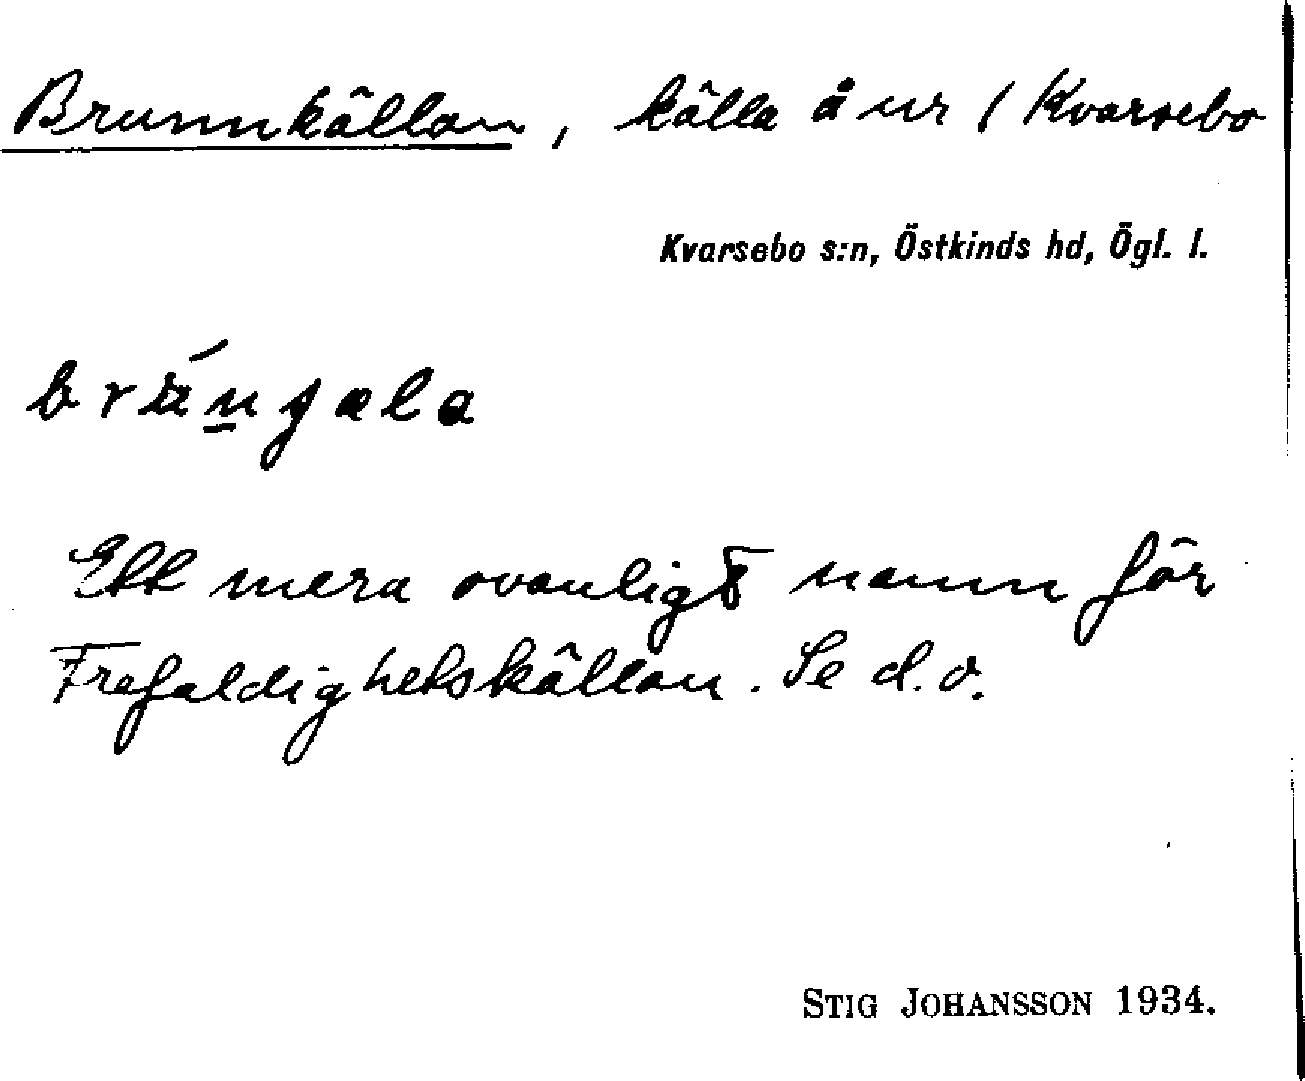 Brunnkällan, källa å ur / Kvarsebo
Kvarsebo s:n, Östkinds hd, Ögl. l.
Ett mera ovanligt namn för
Trefaldighetskällan. Se d.o.
STIG JOHANSSON 1934.